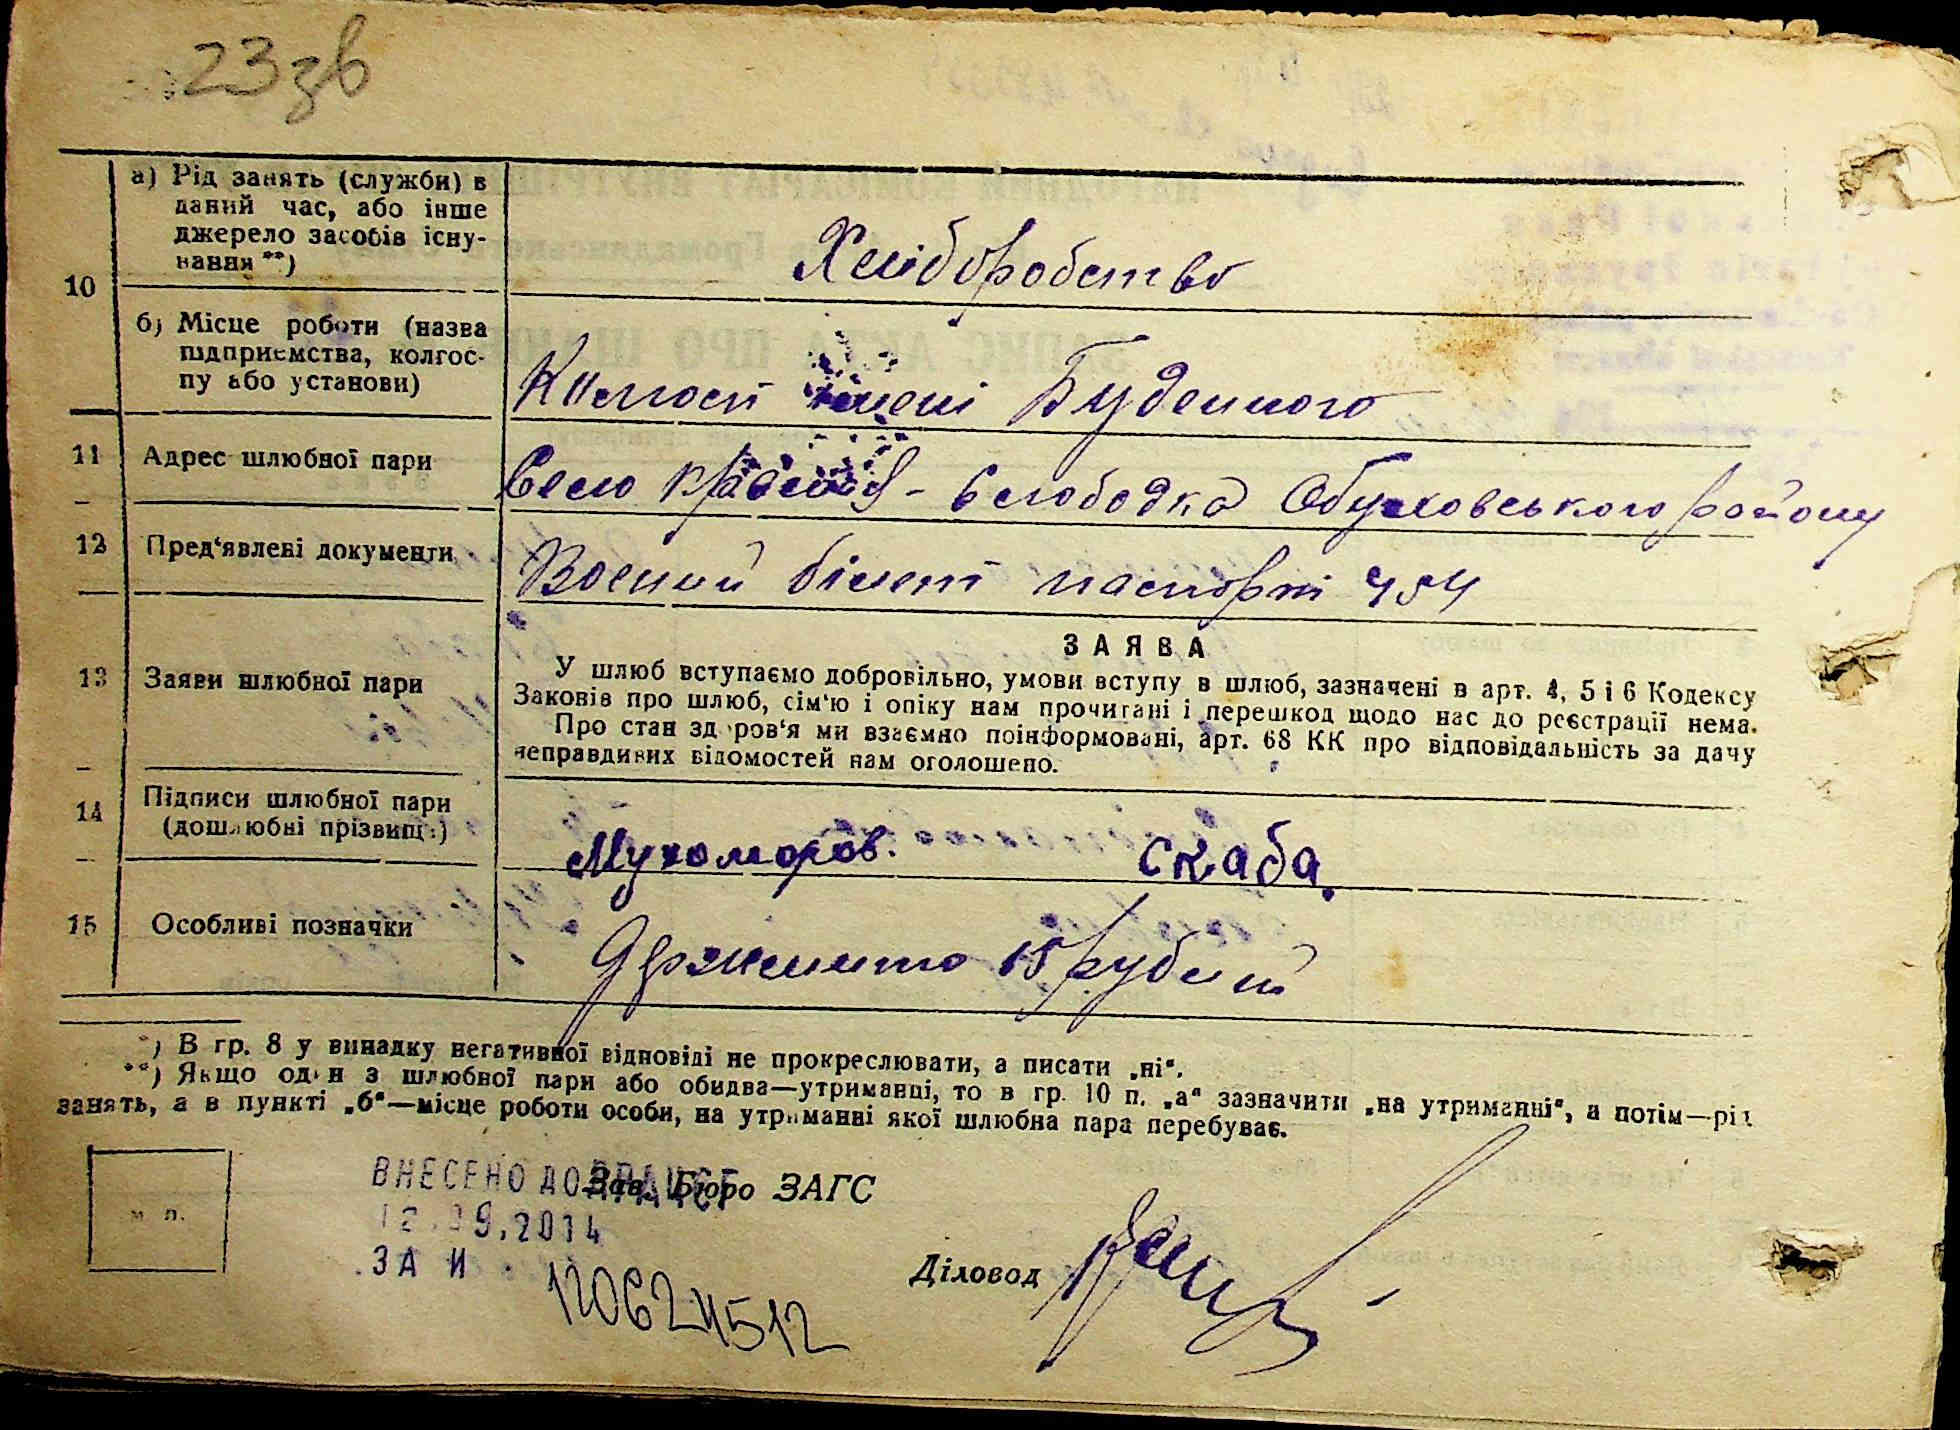 23зв
а) Рід занять (служби) в
даний час, або інше
джерело засобів існу-
вання **)
Хліборобство
10
б) Місце роботи (назва
підприємства, колгос-
пу або установи)
Колгосп імені Буденного
11 Адрес шлюбної пари
Село Красна - Слободка Обуховського району
12 Пред'явлені документи
Воєний білет паспорт
13 Заяви шлюбної пари
ЗАЯВА
У шлюб вступаємо добровільно, умови вступу в шлюб, зазначені в арт. 4, 5 і 6 Кодексу
Законів про шлюб, сім'ю і опіку нам прочитані і перешкод щодо нас до реєстрації нема.
Про стан здоров'я ми взаємно поінформовані, арт. 68 КК про відповідальність за дачу
неправдивих відомостей нам оголошено.
14 Підписи шлюбної пари
(дошлюбні прізвища)
Мухоморов. Скаба.
15 Особливі позначки
Держмито 15 рублей
*) В гр. 8 у випадку негативної відповіді не прокреслювати, а писати „ні“.
**) Якщо один з шлюбної пари або обидва—утриманці, то в гр. 10 п. „а“ зазначити „на утриманні“, а потім—рід
занять, а в пункті „б“—місце роботи особи, на утриманні якої шлюбна пара перебуває.
м. п.
ВНЕСЕНО ДО ДРАЦСГ
12.09.2014
ЗА N
120624512
Зав. Бюро ЗАГС
Діловод